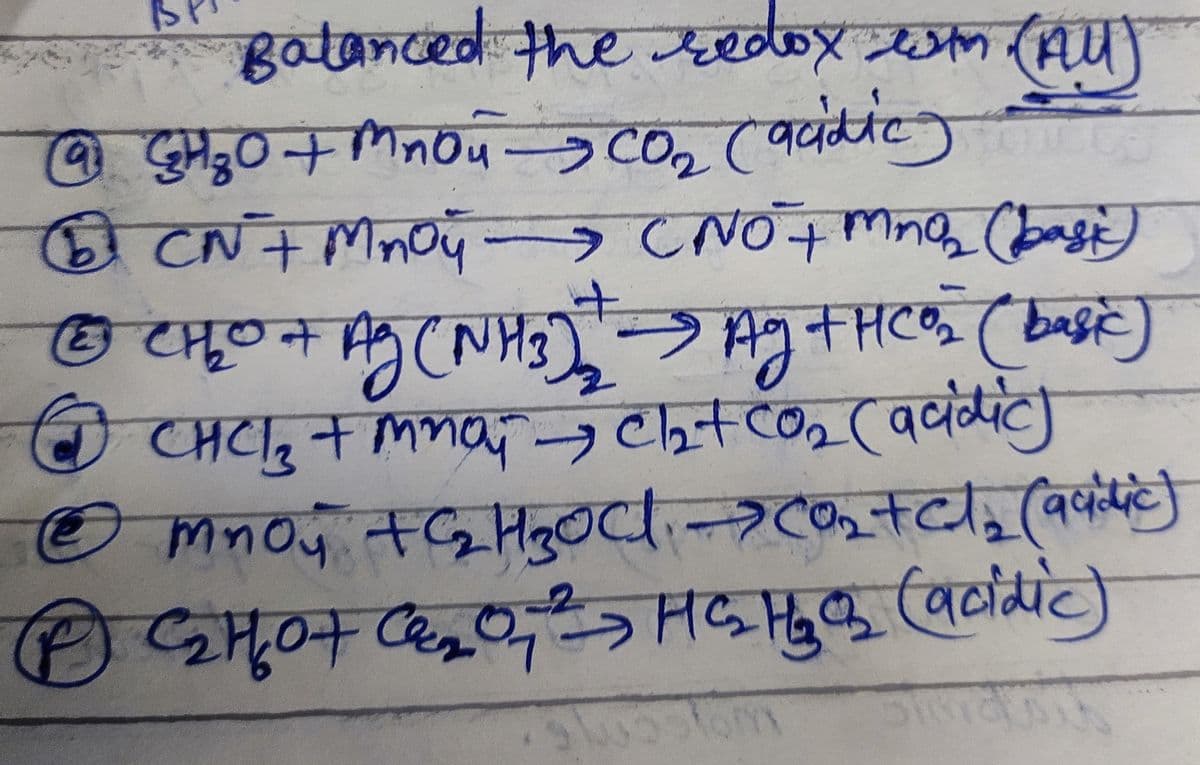 Balanced the redox rxn (All)
(a) C₃H₈O + MnO₄⁻ → CO₂ (acidic)
(b) CN⁻ + MnO₄⁻ → CNO⁻ + MnO₂ (basic)
(c) CH₂O + Ag(NH₃)₂⁺ → Ag + HCO₂⁻ (basic)
(d) CHCl₃ + MnO₄⁻ → Cl₂ + CO₂ (acidic)
(e) MnO₄⁻ + C₂H₃OCl → CO₂ + Cl₂ (acidic)
(f) C₂H₆O + Cr₂O₇⁻² → HC₂H₃O₂ (acidic)